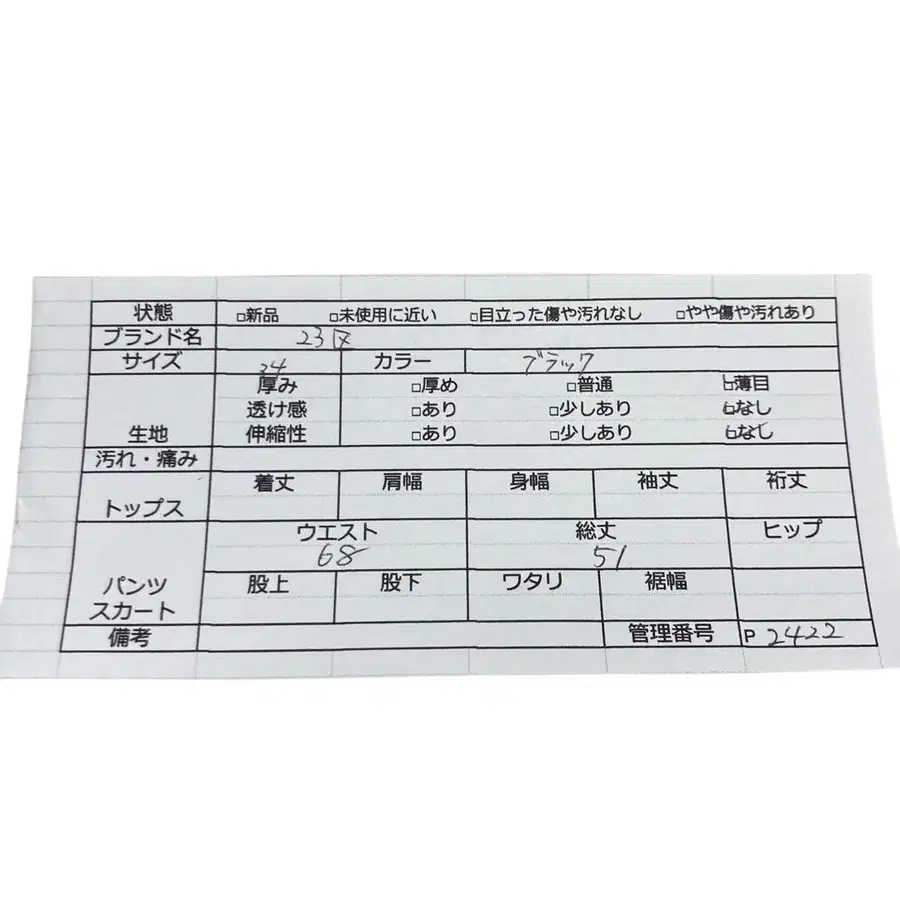 状態 □新品 □未使用に近い □目立った傷や汚れなし □やや傷や汚れあり
ブランド名 23区
サイズ 34 カラー ブラック
厚み □厚め □普通 □薄目
透け感 □あり □少しあり □なし
生地 伸縮性 □あり □少しあり □なし
汚れ・痛み
着丈 肩幅 身幅 袖丈 裄丈
トップス
ウエスト 総丈 ヒップ
68 51
パンツ 股上 股下 ワタリ 裾幅
スカート
備考 管理番号 P 2422